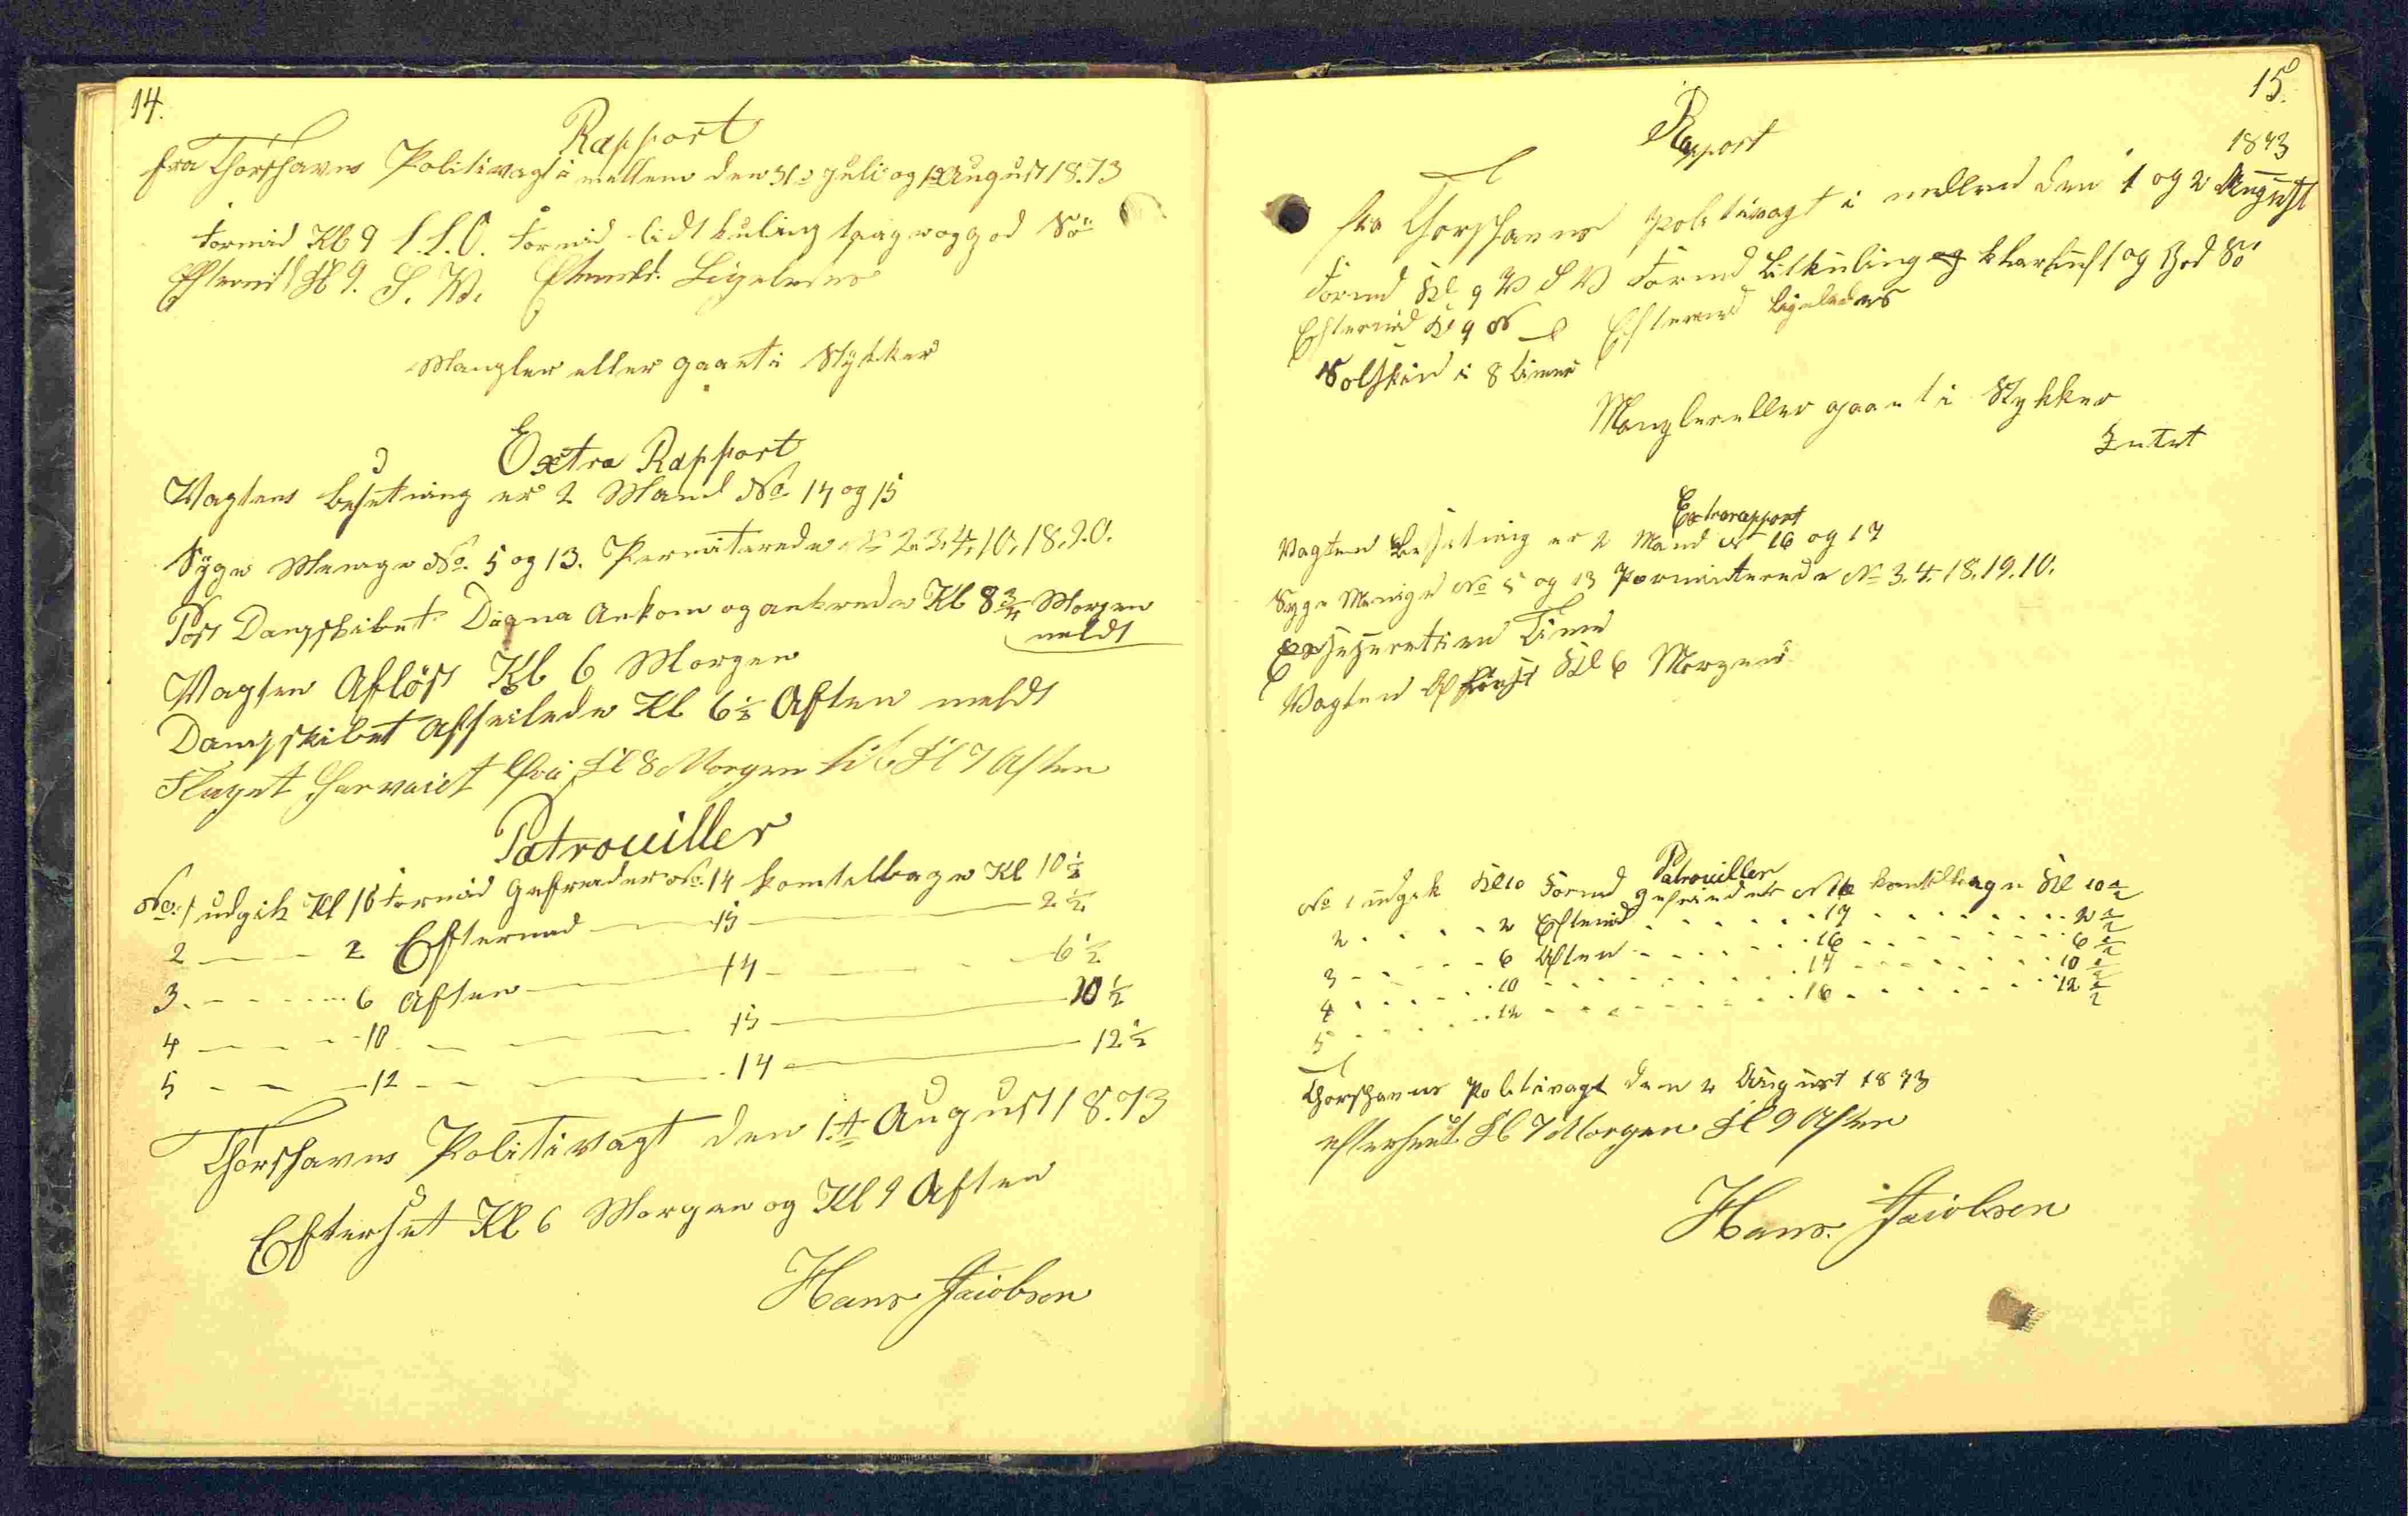 14.
Rapport
fra Thorshavns Politivagt i mellem den 31te Juli og 1te August 18.73
Formid Kl 9 S.S.O. Formid lidt kuling taag og god Sö
Eftermid Kl 9. S. W. Eftermdt. Ligeledes
Mangler eller gaaet i Stykker
Extra Rapport
Vagtens besetning er 2 Mand No. 14 og 15
Syge Menige No. 5 og 13. Permiterede No 2.3.4.10.18.20.
Post Dampskibet Diana Ankom og ankrede Kl 8 3/4 Morgen
meldt
Vagten Aflöst Kl 6 Morgen
Dampskibet Afseilede Kl 6 1/2 Aften meldt
Flaget har vaiet fra Kl 8 Morgen til Kl 7 Aften
Patrouiller
No. 1 udgik Kl 10 Formid Gefreider No. 14 kom tilbage Kl 10 1/2
2 — — 2 Eftermad — 15 — 2 1/2
3. - - - - 6 Aften — 14 - - - 6 1/2
4 — - - - 10 - — — 15 — 10 1/2
5 - - — 12 - - — - 14 — 12 1/2
Thorshavns Politivagt den 1.te August 18.73
Efterset Kl 6 Morgen og Kl 9 Aften
Hans Jacobsen
15.
Rapport
1873
fra Thorshavns politivagt i mellem den 1 og 2 August
Formd Kl 9 V S V Formd Litkuling og klarluft og God Sö
Eftermid Kl 9 Eftermd ligeledes
Solskin i 8 Timer
Mangler eller gaaet i Stykker
Intet
Extrarapport
Vagten Besetnig er 2 Mand No 16 og 17
Syge Menige No 5 og 13 Permiterede No 3.4.18.19.10.
Exseseretsien Time
Vagten Aflöest Kl 6 Morgen
Patrouiller
No 1 udgek Kl 10 Formd gefreider No 16 kom tilbage Kl 10 1/2
2 . . . . 2 Eftemid . . . . . . 17 . . . . . . . . 2 1/2
3 - - - - - 6 Aften - - - - - - 16 - - - - - - - 6 1/2
4 . . . . . 10 - - - - - - - - - 17 - - - - - - - 10 1/2
5 . . . . . 12 - - - - - - - - - 16 - - - - - - - 12 1/2
Thorshavns Politivagt den 2 August 1873
efterseet Kl 7 Morgen Kl 9 Aften
Hans. Jacobsen